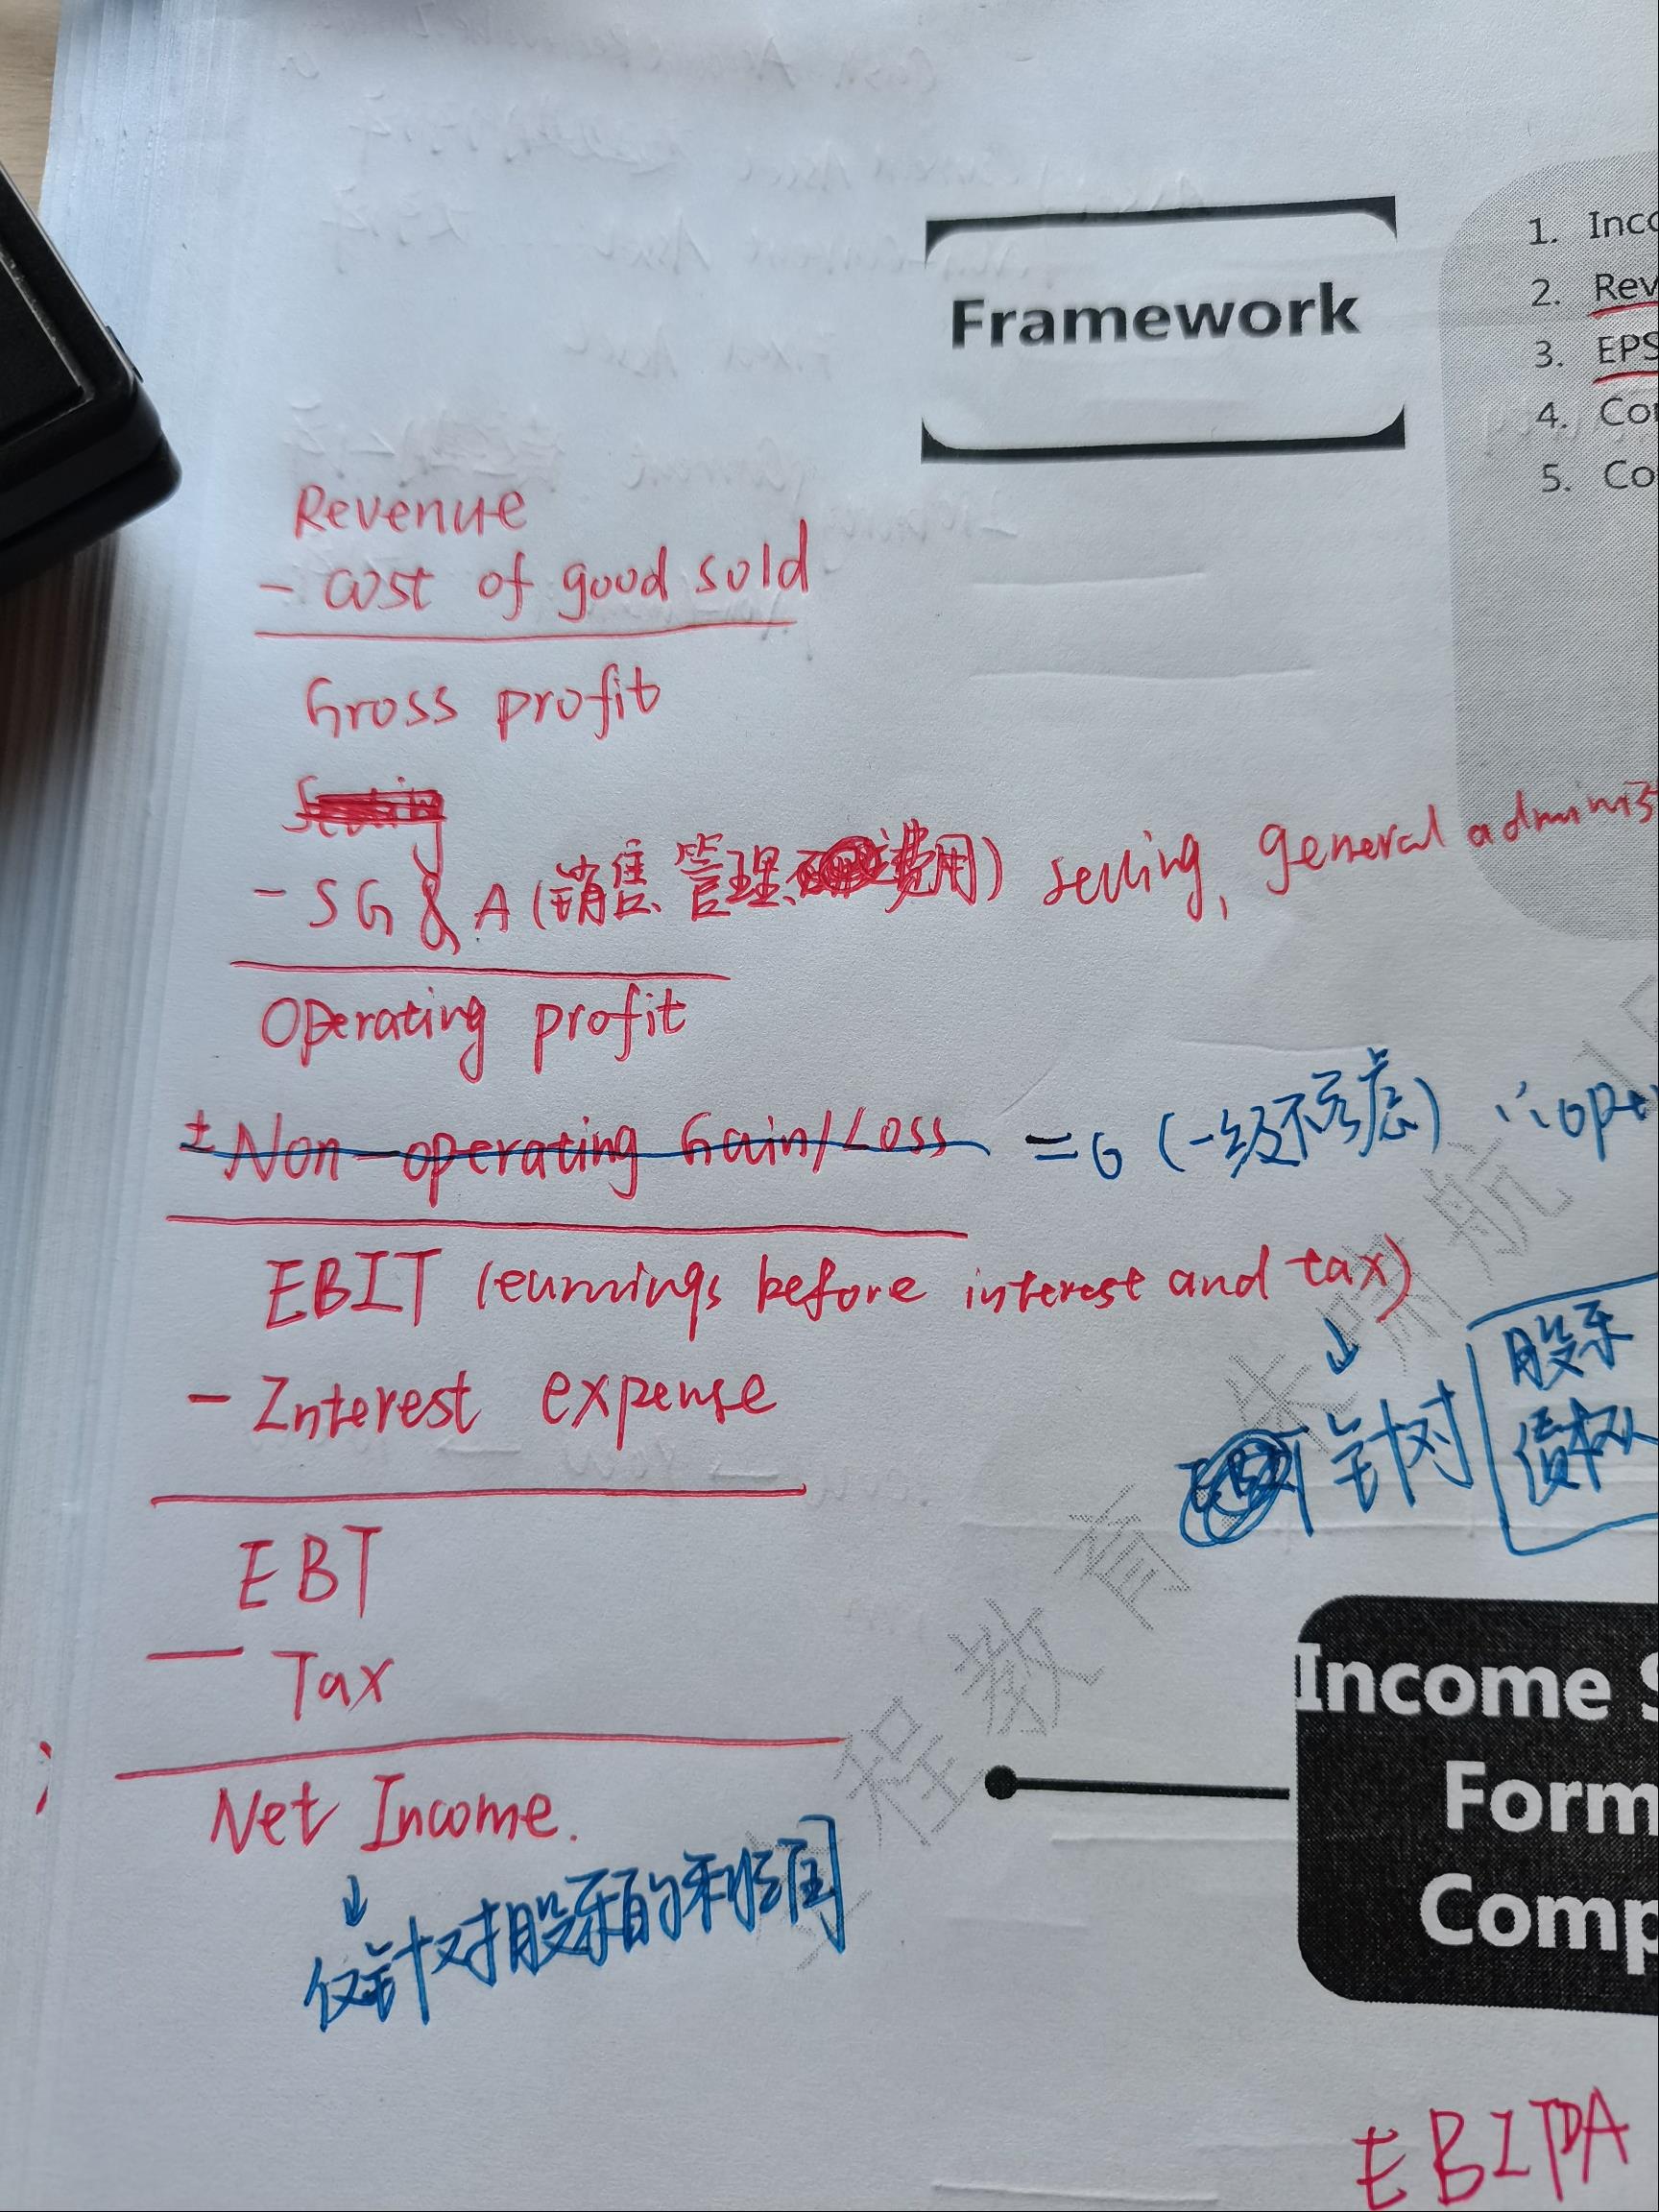 Framework
1. Inco
2. Rev
3. EPS
4. Co
5. Co
Revenue
- cost of good sold
Gross profit
- SG & A (销售、管理、费用) selling, general adminis
Operating profit
± Non-operating Gain/Loss = 0 (一级不考虑) ∵ ope
EBIT (earnings before interest and tax)
↓
针对
股东
债权人
- Interest expense
EBT
— Tax
Net Income.
↓
仅针对股东的利润
程教育 航
Income S
Form
Comp
EBITDA